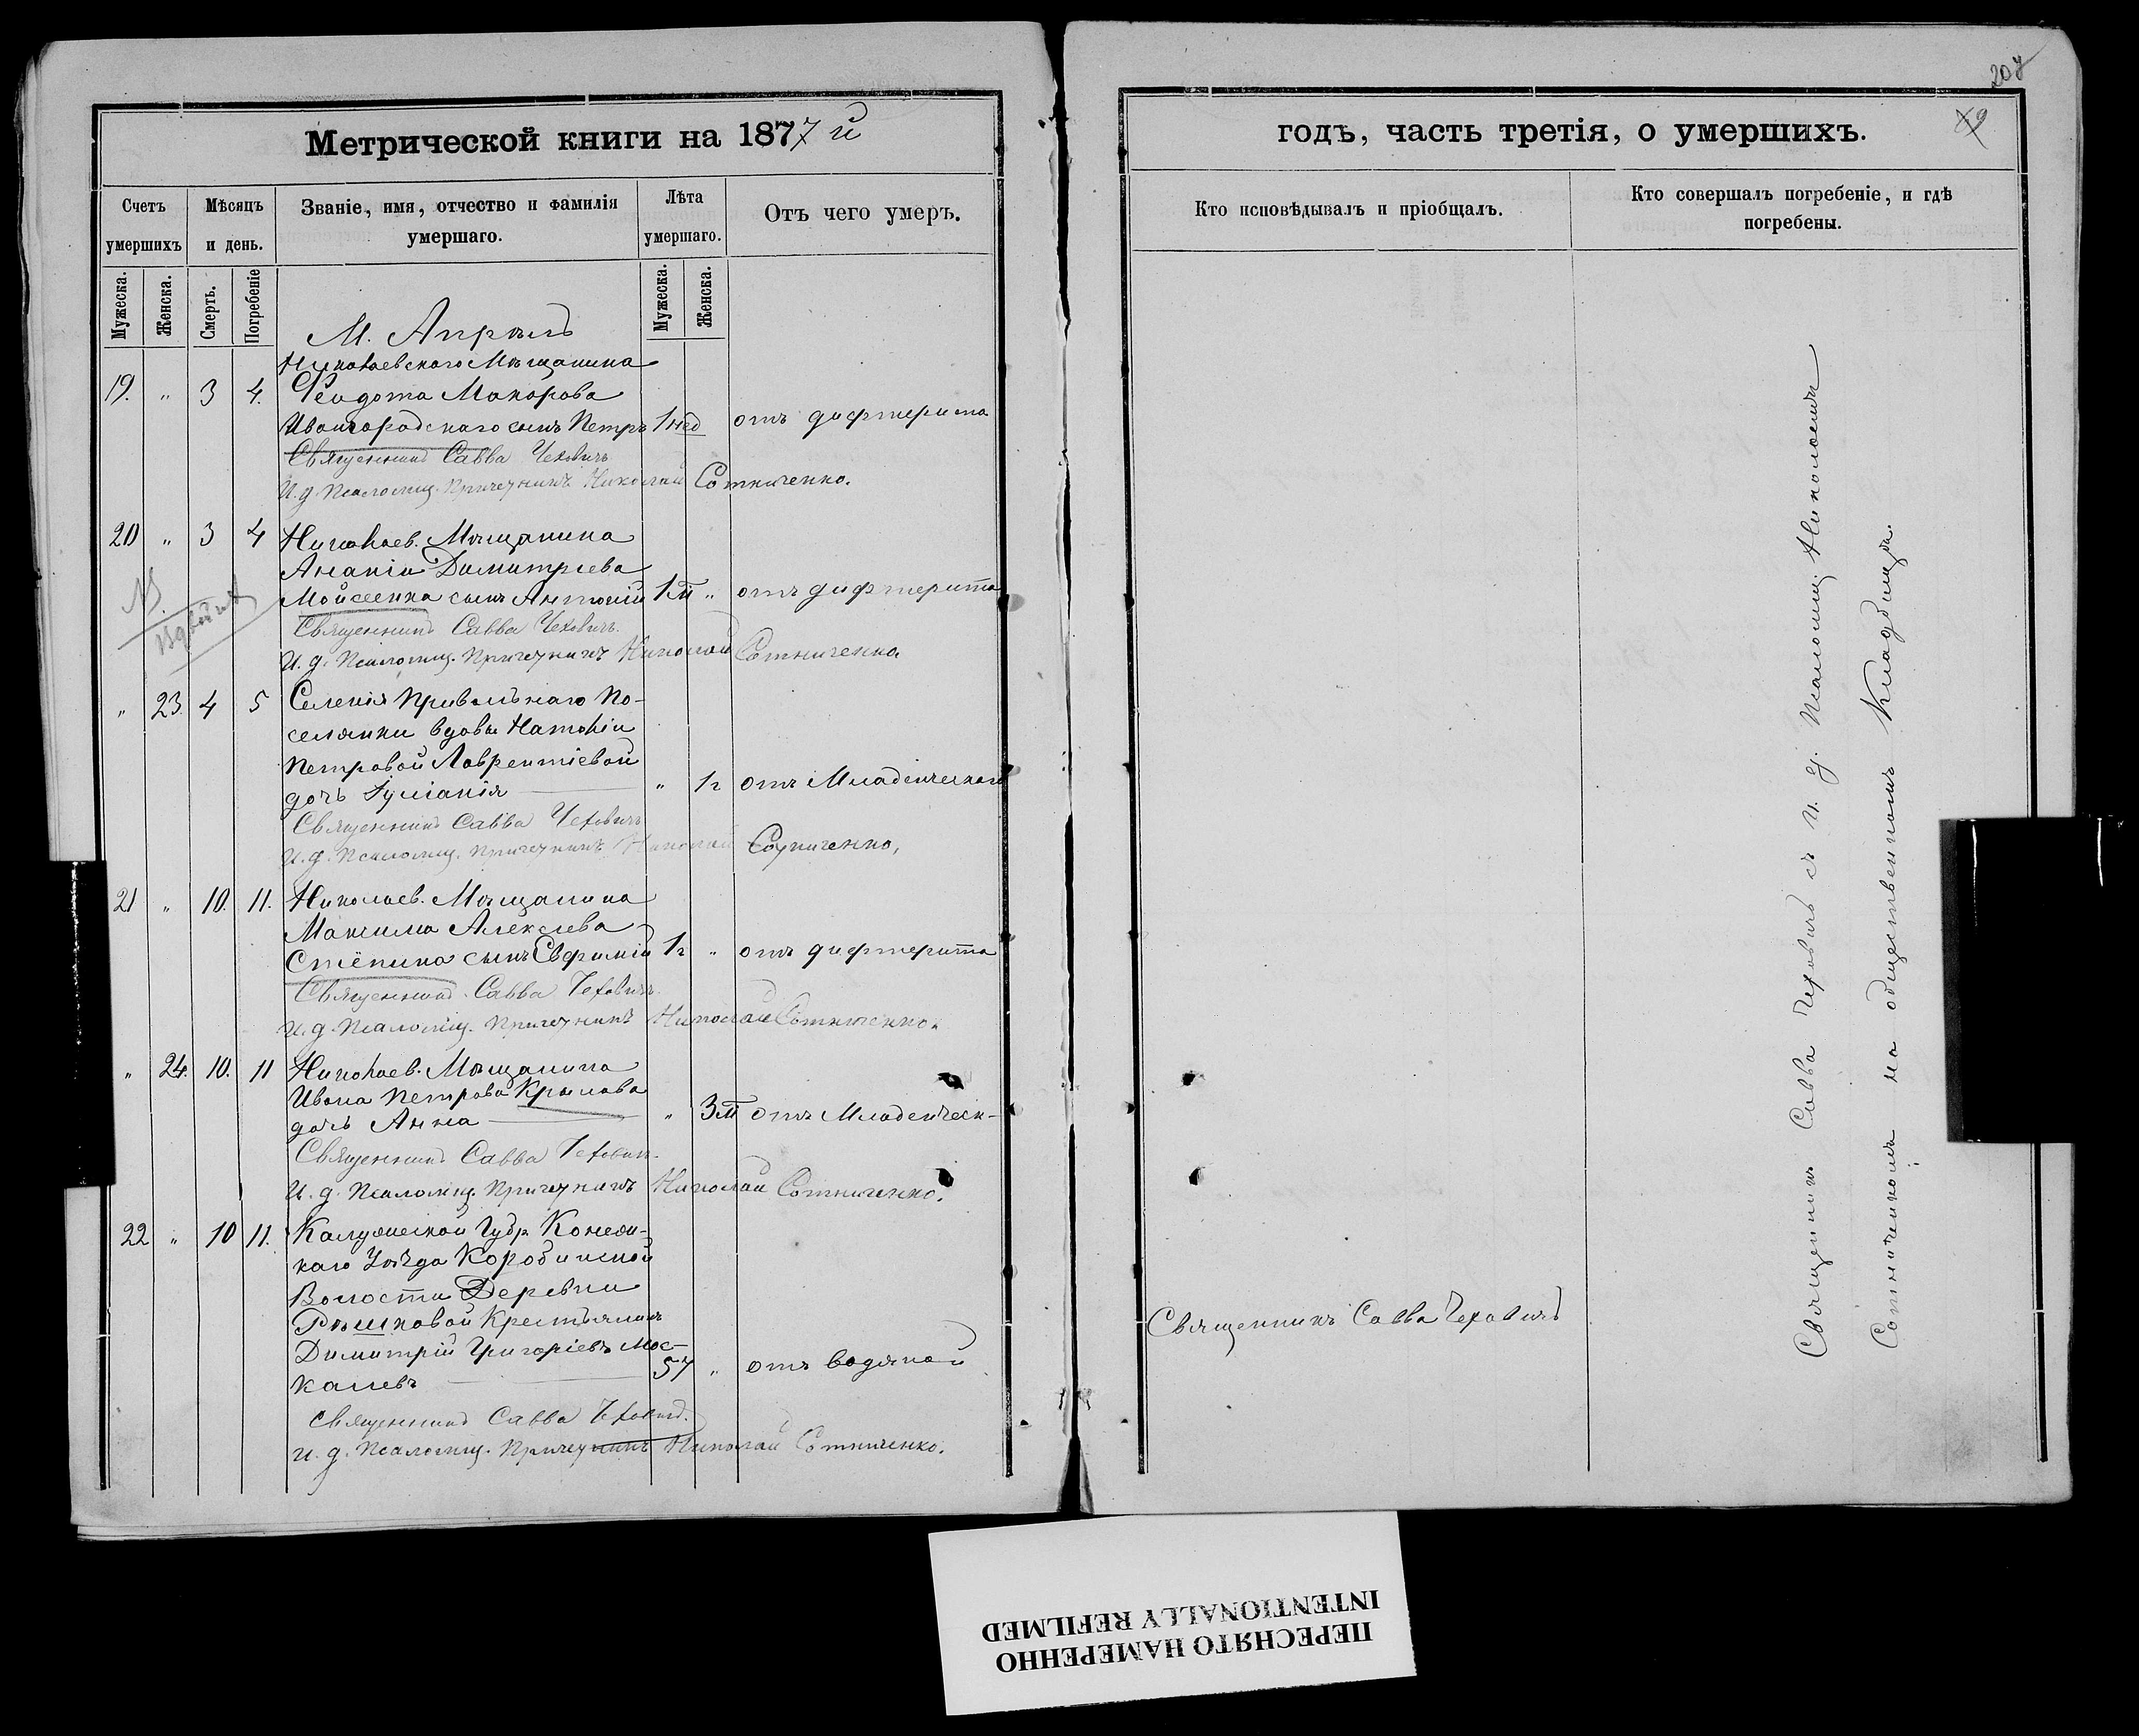 Метрической книги на 1877 й
Счетъ умершихъ
Мѣсяцъ и день.
Званіе, имя, отчество и фамилія умершаго.
Лѣта умершаго.
Отъ чего умеръ.
Мужеска.
Женска.
Смерть.
Погребеніе
Мужеска.
Женска.
М. Апрѣль
Николаевскаго Мѣщанина
19. " 3 4. Феодота Макарова
Ивангородскаго сынъ Петръ 1 нед отъ дифтерита
Священникъ Савва Чеховичъ
И. д. Псаломщ. Причетникъ Николай Сотниченко.
20 " 3 4 Николаев. Мѣщанина
Ананіи Димитріева
Мойсеенка сынъ Антоній 1 м " отъ дифтерита
Священникъ Савва Чеховичъ.
И. д. Псаломщ. Причетникъ Николай Сотниченко
" 23. 4 5 Селенія Привольнаго По-
селянки вдовы Наталіи
Петровой Лаврентіевой
дочь Іуліанія " 1 г отъ Младенческаго
Священникъ Савва Чеховичъ
И. д. Псаломщ. Причетникъ Николай Сотниченко,
21 " 10. 11. Николаев. Мѣщанина
Максима Алексѣева
Стёпина сынъ Евфимій 1 г " отъ дифтерита
Священникъ Савва Чеховичъ.
И. д. Псаломщ. Причетникъ Николай Сотниченко.
" 24. 10. 11 Николаев. Мѣщанина
Ивана Петрова Крылова
дочь Анна " 3 м отъ Младенческ-
Священникъ Савва Чеховичъ.
И. д. Псаломщ. Причетникъ Николай Сотниченко.
22 " 10 11. Калужской Губр
каго Уѣзда
Волости Деревни
Крестьянинъ
Димитрій Григоріевъ Мос-
калевъ 57 " отъ водяной
Священникъ Савва Чеховичъ.
И. д. Псаломщ. Причетникъ Николай Сотниченко.
207
89
годъ, часть третія, о умершихъ.
Кто исповѣдывалъ и пріобщалъ.
Кто совершалъ погребеніе, и гдѣ погребены.
Священникъ Савва Чеховичъ
Священникъ Савва Чеховичъ съ И. д. Псаломщ. Николаемъ
Сотниченкомъ на общественномъ Кладбищѣ.
ПЕРЕСНЯТО НАМЕРЕННО
INTENTIONALLY REFILMED